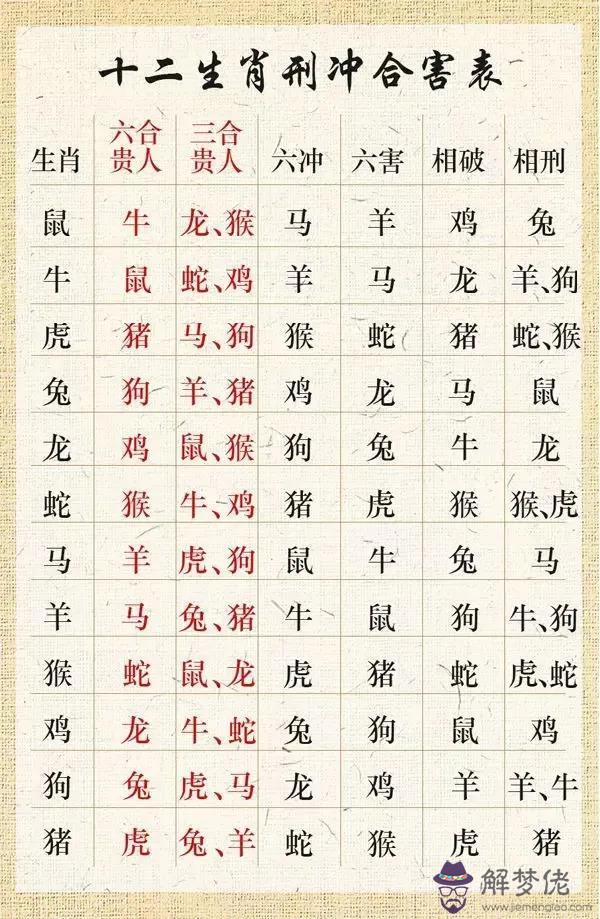 十二生肖刑冲合害表
生肖 六合贵人 三合贵人 六冲 六害 相破 相刑
鼠 牛 龙、猴 马 羊 鸡 兔
牛 鼠 蛇、鸡 羊 马 龙 羊、狗
虎 猪 马、狗 猴 蛇 猪 蛇、猴
兔 狗 羊、猪 鸡 龙 马 鼠
龙 鸡 鼠、猴 狗 兔 牛 龙
蛇 猴 牛、鸡 猪 虎 猴 猴、虎
马 羊 虎、狗 鼠 牛 兔 马
羊 马 兔、猪 牛 鼠 狗 牛、狗
猴 蛇 鼠、龙 虎 猪 蛇 虎、蛇
鸡 龙 牛、蛇 兔 狗 鼠 鸡
狗 兔 虎、马 龙 鸡 羊 羊、牛
猪 虎 兔、羊 蛇 猴 虎 猪
解梦佬
www.jiemenglao.com